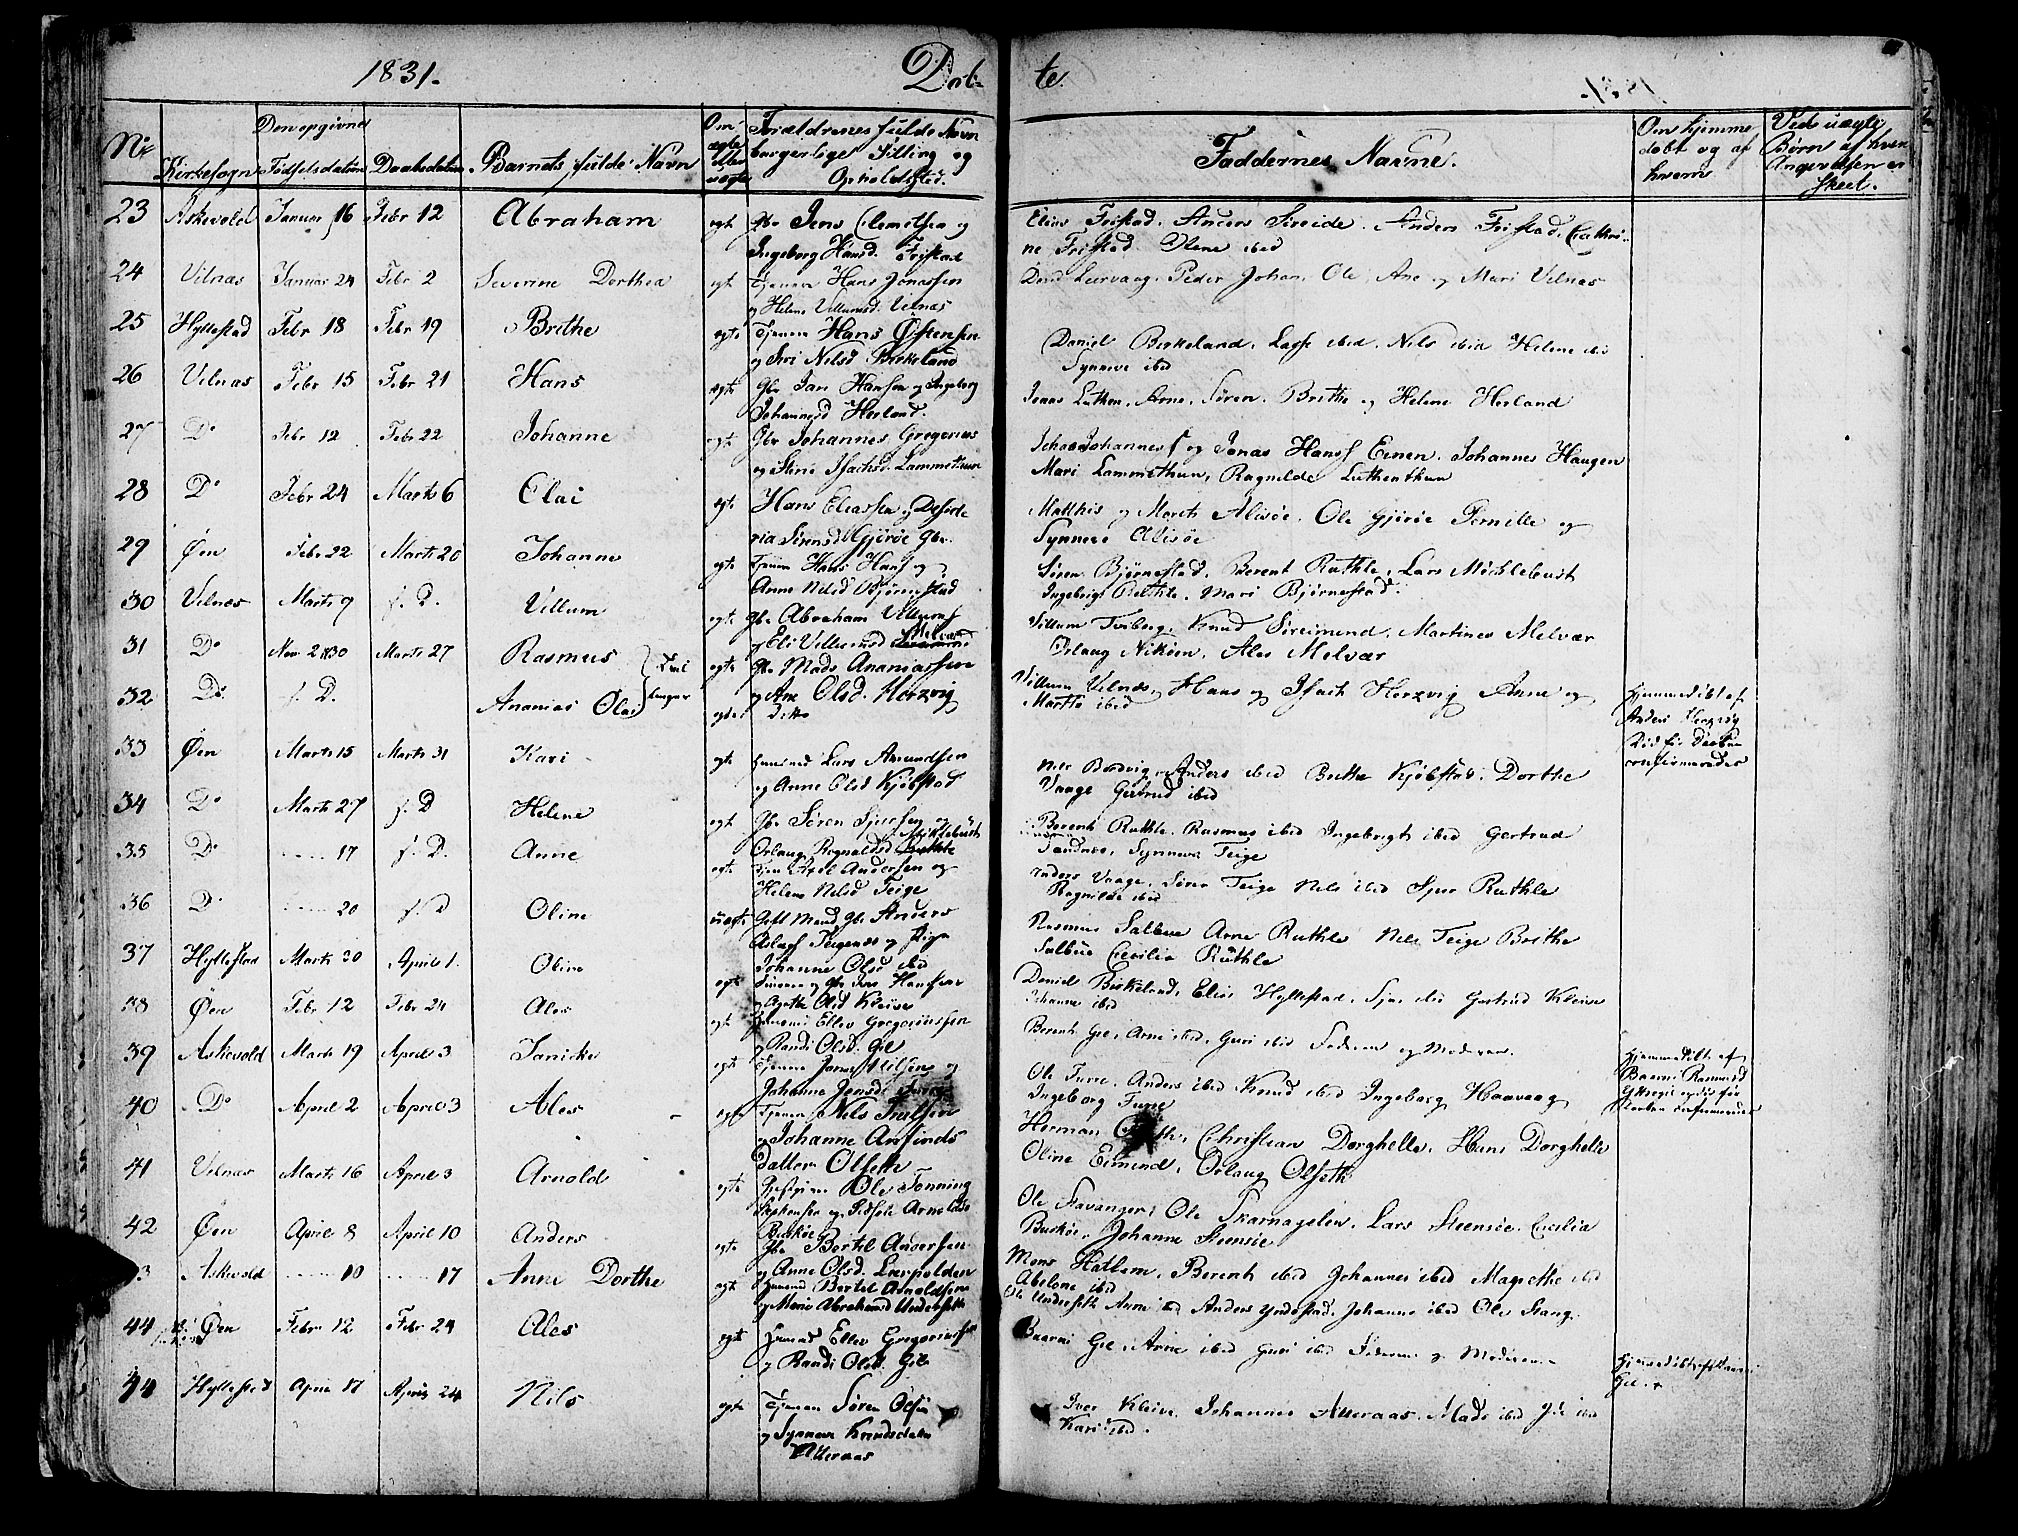 1831.
Døb-
te.
No
Kirkesogn
Den opgivne
Fødselsdatum
Daabsdatum
Barnets fulde Navn
Om ægte eller uægte
Forældrenes fulde Navn
borgerlige Stilling og
Opholdssted.
Faddernes Navne.
Om hjemme
døbt og af
hvem
Ved uægte
Børn af hvem
Angivelsen er
skeet.
23 Askevold Januar 16 Febr 12 Abraham ægt Gbr Jens Clemetsen og
Ingeborg Hansd. Fristad
Elias Fristad. Anders Sireide. Anders Fristad. Cathri-
ne Fristad. Olene ibid
24 Vilnæs Januar 24 Febr 2 Severine Dorthea egt Tjenere Hans Jonassen
og Helene Villumsd. Vilnæs
Leervaag. Peder Johan. Ole, Ane og Mari Vilnæs
25 Hyllestad Febr 18 Febr 19 Brithe egte Tjenere Hans Østensen
og Siri Nilsd Birkeland
Daniel Birkeland. Lasse ibid. Nils ibid Helene ibid
Synneve ibid
26 Vilnæs Febr 15 Febr 21 Hans egte Gbr Jan Hansen og Ingeborg
Johannesd Herland.
Jonas Luthen. Arne. Søren. Brithe og Helene Herland
27 Do Febr 12 Febr 22 Johanne egte Gbr Johannes Gregorius
og Stine Isachsd. Lammethun
Johannes og Jonas Hanss Einen. Johannes Haugen
Mari Lammethun, Ragnilde Luthenthun
28 Do Febr 24 Marts 6 Elai egte Hans Eliassen og Deside
ria Sørensd Gjørøe Gbr.
Matthis og Marith Alisøe. Ole Gjørøe Pernille og
Synneve Alisøe
29 Øen Febr 22 Marts 20 Johanne egte Tjener Hans Hanss og
Anne Nilsd Bjørnestad
Søren Bjørnestad. Berent Ruthle. Lars Möchlebust
Ingebrigt Ruthle. Mari Bjørnestad.
30 Vilnæs Marts 9 s. D. Villum egte Gbr Abraham Villums
og Eli Villumsd Melvær
Villum Tviberg. Knud Sireimend. Martines Melvær
Orlaug Nikøen. Ales Melvær
31 Do Nov 2 1830 Marts 27 Rasmus Tvillinger egte Gbr Mads Ananiassen
og Ane Olsd. Herzvig
Villum Vilnæs, Hans og Isach Herzvig Anne og
Marthe ibid
32 Do s. D. Ananias Olai egte Ditto
Hjemmedøbt af
Anders Herzvig
33 Øen Marts 15 Marts 31 Kari egt Huusmd Lars Amundsen
og Anne Olsd Kjøbstad
Nils Bordvig Anders ibid Brithe Kjøbstad. Dorthe
Vaage Gjertrud ibid
34 Do Marts 27 s. D Helene egt Gbr Søren Sjursen og
Orlaug Ragnaldsd Myklebust
Berent Ruthle. Rasmus ibid Ingebrigt ibid Gertrud
Sandnæs. Synneva Teige
35 Do ..... 17 s. D. Anne egt Tjen Axel Andersen og
Helene Nilsd Teige
Anders Vaage. Søren Teige Nils ibid Sjur Ruthle
Ragnilde ibid
36 Do ..... 20 s. D Oline uægte Gift Mand Gbr Anders
Aslags Teigenæs og Pige
Johanne Olsd ibid
Rasmus Salbue Arne Ruthle Nils Teige Brithe
Salbue Cecilia Ruthle
37 Hyllestad Marts 30 April 1. Oline egt Gbr Jens Hansen
og Agathe Olsd Kleive
Daniel Birkeland. Elias Hyllestad. Sjur ibid Gertrud Kleive
Johanne ibid
38 Øen Febr 12 Febr 24 Ales egt Huusmd Ellev Gregoriussen
og Randi Olsd. Gil
Berent Gil. Arne ibid. Guri ibid Faderen og Moderen.
39 Askevold Marts 19 April 3 Janicke egt Tjenere Jonas Nilsen og
Johanne Jensd
Ole Furre. Anders ibid Knud ibid Ingeborg Haavaag
Ingeborg Furre
Hjemmedøbt af
40 Do April 2 April 3 Ales egt Tjener Nils Trulsen
og Johanne Anfinds
datter Olseth
Herman Christian Dorghelle. Hans Dorghelle
Oline Eimend. Orlaug Olseth
41 Vilnæs Marts 16 April 3 Arnold egte Gjestgiver Ole Tonning
Stephensen og Sidsele Arnolds
Buskøe
Ole Stavanger. Ole Skarnagelen. Lars Steensøe. Cecilia
Buskøe. Johanne Steensøe
42 Øen April 8 April 10 Anders egte Gbr Bertil Andersen
og Anne Olsd. Leerpolden
Mons Hatlem. Berent ibid Johannes ibid Magrethe ibid
Abelone ibid
43 Askevold ..... 10 ..... 17 Anne Dorthe egt Huusmd Bertel Arnoldsen
og Marie Abrahamsd Underseth
Ole Underseth Anne ibid Anders Yndestad. Johanne ibid Ole Stang.
44 Øen Febr 12 Febr 24 Ales egt Huusmd Ellev Gregoriussen
og Randi Olsd. Gil
Gil. Arne ibid Guri ibid Faderen og Moderen.
44 Hyllestad April 17 April 24 Nils egte Tjenere Søren Olsen
og Synneve Knudsdatter
Atteraas
Iver Kleive. Johannes Atteraas. Mads ibid ibid
Kari ibid.